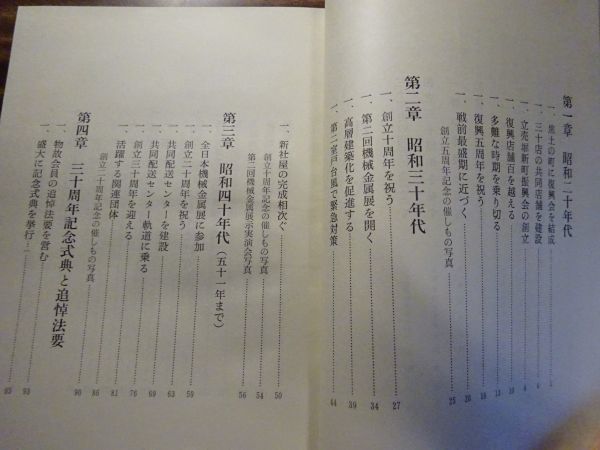 第一章 昭和二十年代
一、焦土の町に復興会を結成
一、三十店の共同店舗を建設
一、立売堀新町振興会の創立
一、復興店舗百を越える
一、多難な時期を乗り切る
一、復興五周年を祝う
一、戦前最盛期に近づく
創立五周年記念の催しもの写真
第二章 昭和三十年代
一、創立十周年を祝う 27
一、第二回機械金属展を開く 34
一、高層建築化を促進する 39
一、第二室戸台風で緊急対策 44
一、新社屋の完成相次ぐ 50
創立十周年記念の催しもの写真 54
第二回機械金属展示実演会写真 56
第三章 昭和四十年代(五十一年まで)
一、全日本機械金属展に参加 59
一、創立二十周年を祝う 63
一、共同配送センターを建設 69
一、共同配送センター軌道に乗る 76
一、創立三十周年を迎える 81
一、活躍する関連団体 86
創立二十周年記念の催しもの写真 90
第四章 三十周年記念式典と追悼法要
一、物故会員の追悼法要を営む 93
一、盛大に記念式典を挙行 95